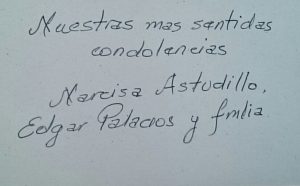 Nuestras mas sentidas
condolencias
Narcisa Astudillo,
Edgar Palacios y fmilia.